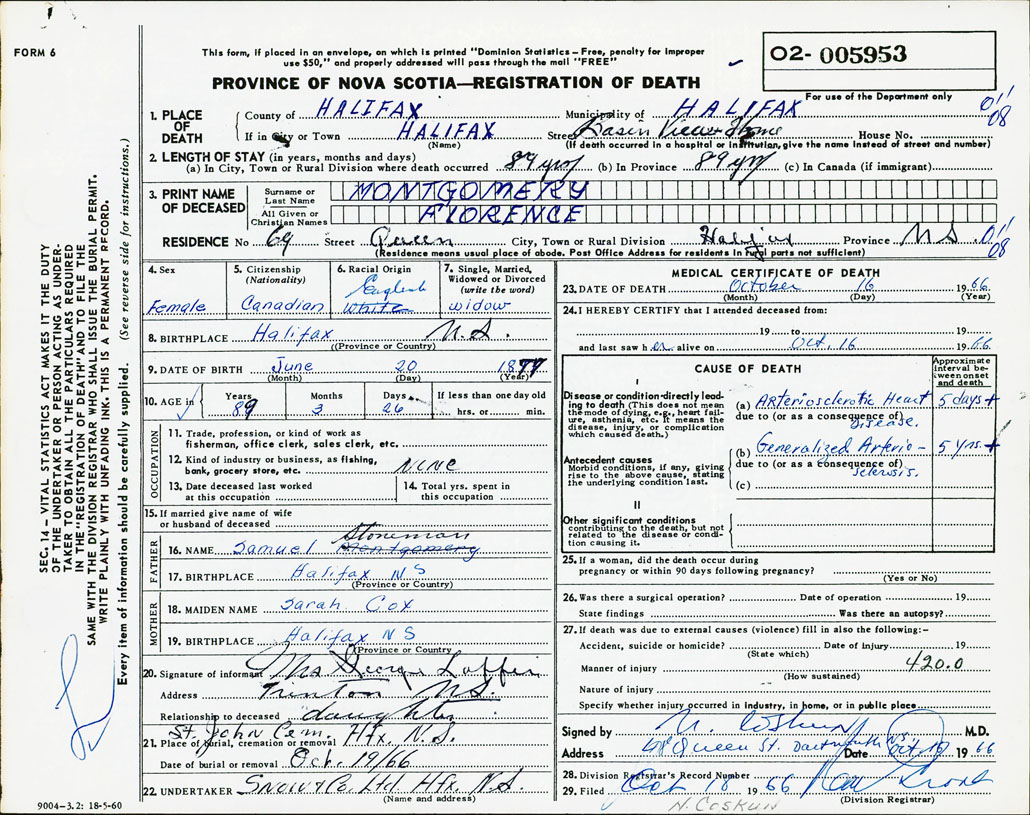 FORM 6
This form, if placed in an envelope, on which is printed "Dominion Statistics – Free, penalty for improper
use $50," and properly addressed will pass through the mail "FREE"
PROVINCE OF NOVA SCOTIA—REGISTRATION OF DEATH
O2- 005953
For use of the Department only
SEC. 14 – VITAL STATISTICS ACT MAKES IT THE DUTY
OF THE UNDERTAKER OR PERSON ACTING AS UNDER-
TAKER TO OBTAIN ALL THE PARTICULARS REQUIRED
IN THE "REGISTRATION OF DEATH" AND TO FILE THE
SAME WITH THE DIVISION REGISTRAR WHO SHALL ISSUE THE BURIAL PERMIT.
WRITE PLAINLY WITH UNFADING INK. THIS IS A PERMANENT RECORD.
Every item of information should be carefully supplied. (See reverse side for instructions.)
1. PLACE OF DEATH
County of HALIFAX Municipality of HALIFAX 01'
08
If in City or Town HALIFAX Street Basin View Home House No.
(Name) (If death occurred in a hospital or institution, give the name instead of street and number)
2. LENGTH OF STAY (in years, months and days)
(a) In City, Town or Rural Division where death occurred 89 yrs (b) In Province 89 yrs (c) In Canada (if immigrant)
3. PRINT NAME OF DECEASED
Surname or Last Name MONTGOMERY
All Given or Christian Names FLORENCE
RESIDENCE No 69 Street Queen City, Town or Rural Division Halifax Province NS 01'
08
(Residence means usual place of abode. Post Office Address for residents in rural parts not sufficient)
4. Sex
Female
5. Citizenship
(Nationality)
Canadian
6. Racial Origin
English
White
7. Single, Married,
Widowed or Divorced
(write the word)
widow
8. BIRTHPLACE Halifax N.S.
(Province or Country)
9. DATE OF BIRTH June 20 1877
(Month) (Day) (Year)
10. AGE in Years Months Days If less than one day old
89 3 26 hrs. or min.
OCCUPATION
11. Trade, profession, or kind of work as
fisherman, office clerk, sales clerk, etc.
12. Kind of industry or business, as fishing,
bank, grocery store, etc. NINE
13. Date deceased last worked
at this occupation
14. Total yrs. spent in
this occupation
15. If married give name of wife
or husband of deceased
FATHER
16. NAME Samuel Stoneman Montgomery
17. BIRTHPLACE Halifax NS
(Province or Country)
MOTHER
18. MAIDEN NAME Sarah Cox
19. BIRTHPLACE Halifax NS
(Province or Country)
20. Signature of informant Mrs George Laffin
Address Trenton NS.
Relationship to deceased daughter
21. Place of burial, cremation or removal St. John Cem. Hfx. N.S.
Date of burial or removal Oct. 19/66
22. UNDERTAKER Snow & Co. Ltd Hfx. N.S.
(Name and address)
9004-3.2: 18-5-60
MEDICAL CERTIFICATE OF DEATH
23. DATE OF DEATH October 16 1966
(Month) (Day) (Year)
24. I HEREBY CERTIFY that I attended deceased from:
19 to 19
and last saw her alive on Oct. 16 1966
CAUSE OF DEATH
Approximate
interval be-
tween onset
and death
I
Disease or condition directly lead-
ing to death (This does not mean
the mode of dying, e.g., heart fail-
ure, asthenia, etc. It means the
disease, injury, or complication
which caused death.)
(a) Arteriosclerotic Heart 5 days +
due to (or as a consequence of)
Disease.
Antecedent causes
Morbid conditions, if any, giving
rise to the above cause, stating
the underlying condition last.
(b) Generalized Arterio- 5 yrs. +
due to (or as a consequence of)
sclerosis.
(c)
II
Other significant conditions
contributing to the death, but not
related to the disease or condi-
tion causing it.
25. If a woman, did the death occur during
pregnancy or within 90 days following pregnancy?
(Yes or No)
26. Was there a surgical operation? Date of operation 19
State findings Was there an autopsy?
27. If death was due to external causes (violence) fill in also the following:–
Accident, suicide or homicide? Date of injury 19
(State which)
Manner of injury 420.0
(How sustained)
Nature of injury
Specify whether injury occurred in industry, in home, or in public place
Signed by N. Coskun M.D.
Address Queen St. Dartmouth NS. Date Oct. 1966
28. Division Registrar's Record Number
29. Filed Oct 18 1966
(Division Registrar)
N. COSKUN